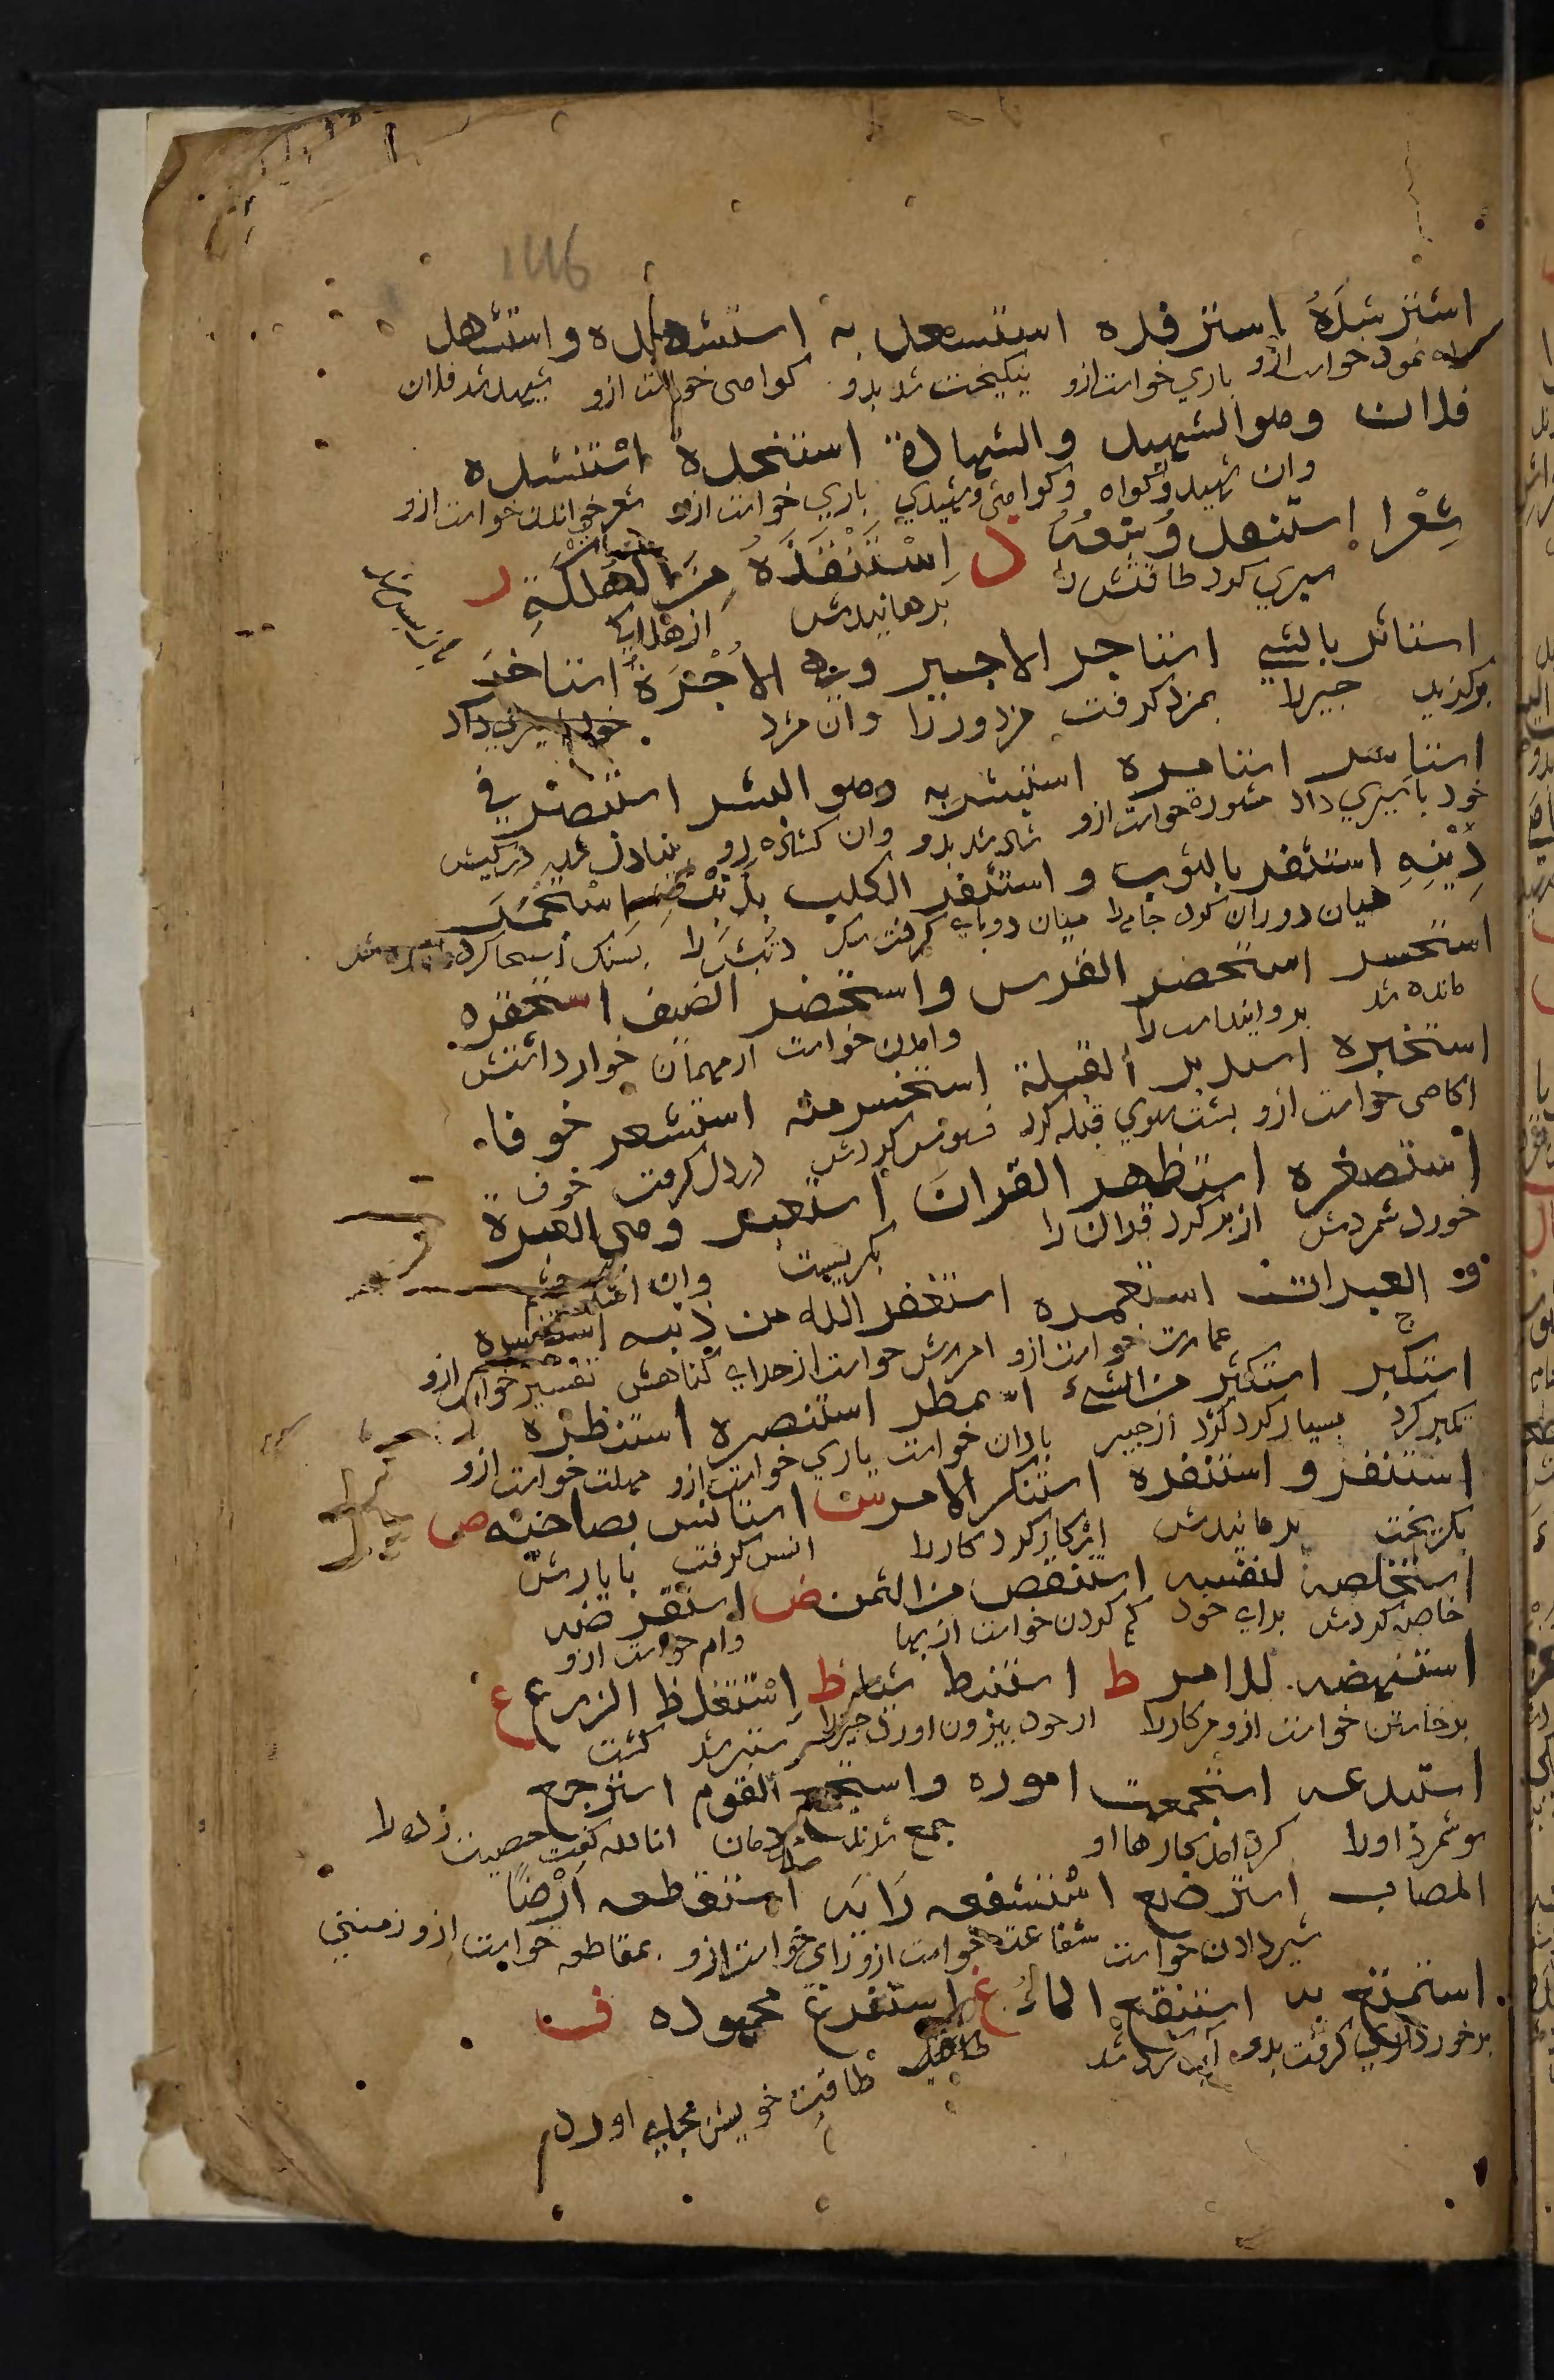 استرشده استرفده استسعد به استشهده واستشهد
راه نمودن خواست ازو ياري خواست ازو نيكبخت شد بدو كواهى خواست ازو شهيد شد فلان
فلان وهو الشهيد والشهادة استنجده استنشده
وان شهيد وكواه وكواهى وشهيدي ياري خواست ازو شعر خواندن خواست ازو
شِعْرا استنفد وُسْعَهُ ذ اِسْتَنْقَذَهُ مِنَ الهَلَكَةِ ر
سپري كرد طاقتش را برهانيدش از هلاكى
استاثر بالشي استاجر الاجير وهى الاُجْرَةُ استاخَرَ
بركزيد چيز را بمزد كرفت مزدور را وان مزد
استاسر استامره استبشر به وهو البشر استبصر في
خود باسيري داد مشوره خواست ازو شاد شد بدو وان كشاده رو بينادل شد در كيش
دِيْنِهِ استثفر بالثوب واستثفر الكلب بذنبه استجمَرَ
ميان دوران كرد جامه را ميان دو پاى كرفت سك دنبش را بسنك استنجا كرد
استحسر استحضر الفرس واستحضر الضيف استحقره
مانده شد بدوانيد اسب را وامدن خواست از مهمان خوار داشتش
استخبره استدبر القبلة استخسر منه استشعر خوفا
اكاهى خواست ازو پشت سوي قبله كرد فسوس كردش در دل كرفت خوف
استصغره استظهر القران استعبر وهى العبرة
خورد شمردش از بر كرد قران را بكريست وان اشك چشم
و العبرات استعمره استغفر الله من ذنبه استفسره
عمارت خواست ازو امرزش خواست از خداى كناهش تفسير خواست ازو
استكبر استكثر من الشيء استمطر استنصره استنظره
تكبر كرد بسيار كرد از چيز باران خواست ياري خواست ازو مهلت خواست ازو
استنفر و استنفره استنكر الامر س استانس بصاحبه ص
بكريخت برمانيدش انكار كرد كار را انس كرفت با يارش
استخلصه لنفسه استنقص من الثمن ض استقرضه
خاصه كردش براى خود كم كردن خواست از بها وام خواست ازو
استنهضه للامر ط استنبط شيا ظ اِسْتَغلظ الزرع ع
برخاستن خواست ازو مر كار را از خود بيرون اورد چيز را ستبر شد كشت
استبدعه استجمعت اموره واستجمع القوم استرجع
نو شمرد اورا كرد امد كارها او جمع شدند مردمان انا لله كفت مصيبت زده را
المصاب استرضع استشفعه رَايَه استقطعه اَرْضًا
شير دادن خواست شفاعت خواست ازو راى خواست ازو بمقاطعه خواست ازو زمينى
استمتع به استنقع الماءُ غ استفرغ مجهوده ف
برخورداري كرفت بدو آب كرد شد طاقت خويش بجاى اورد